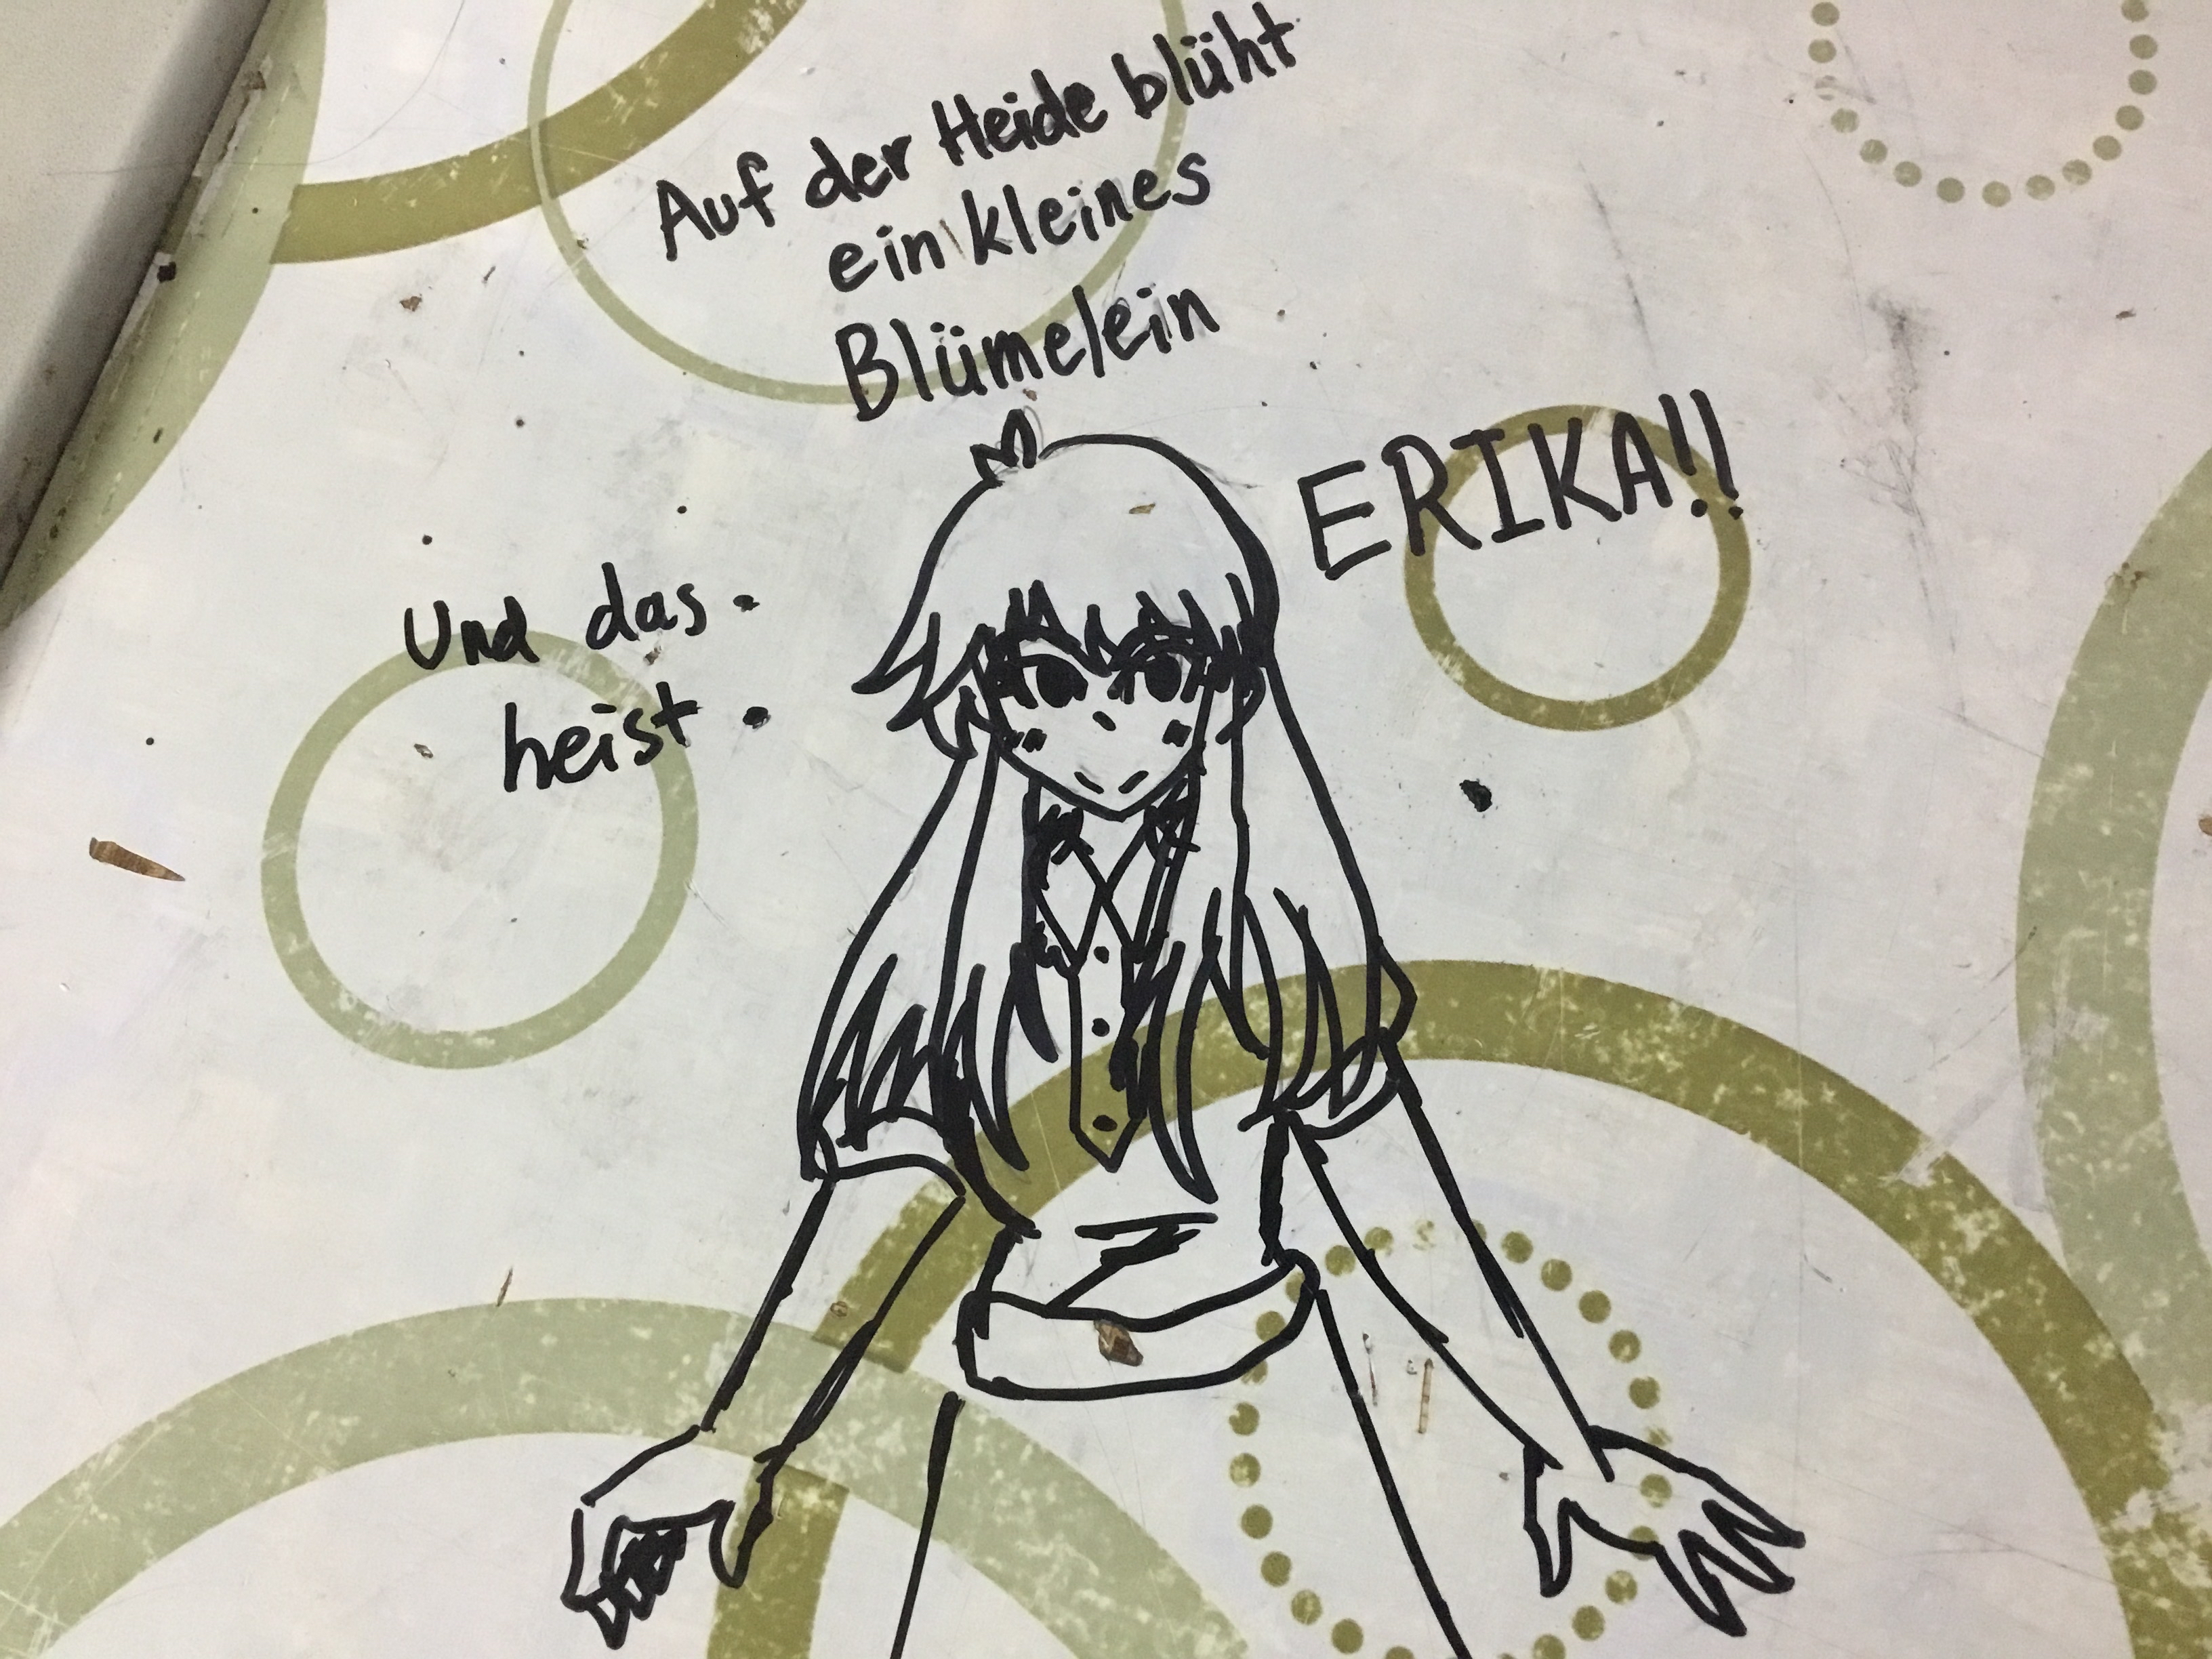 Auf der Heide blüht
ein kleines
Blümelein
Und das
heist :
ERIKA!!